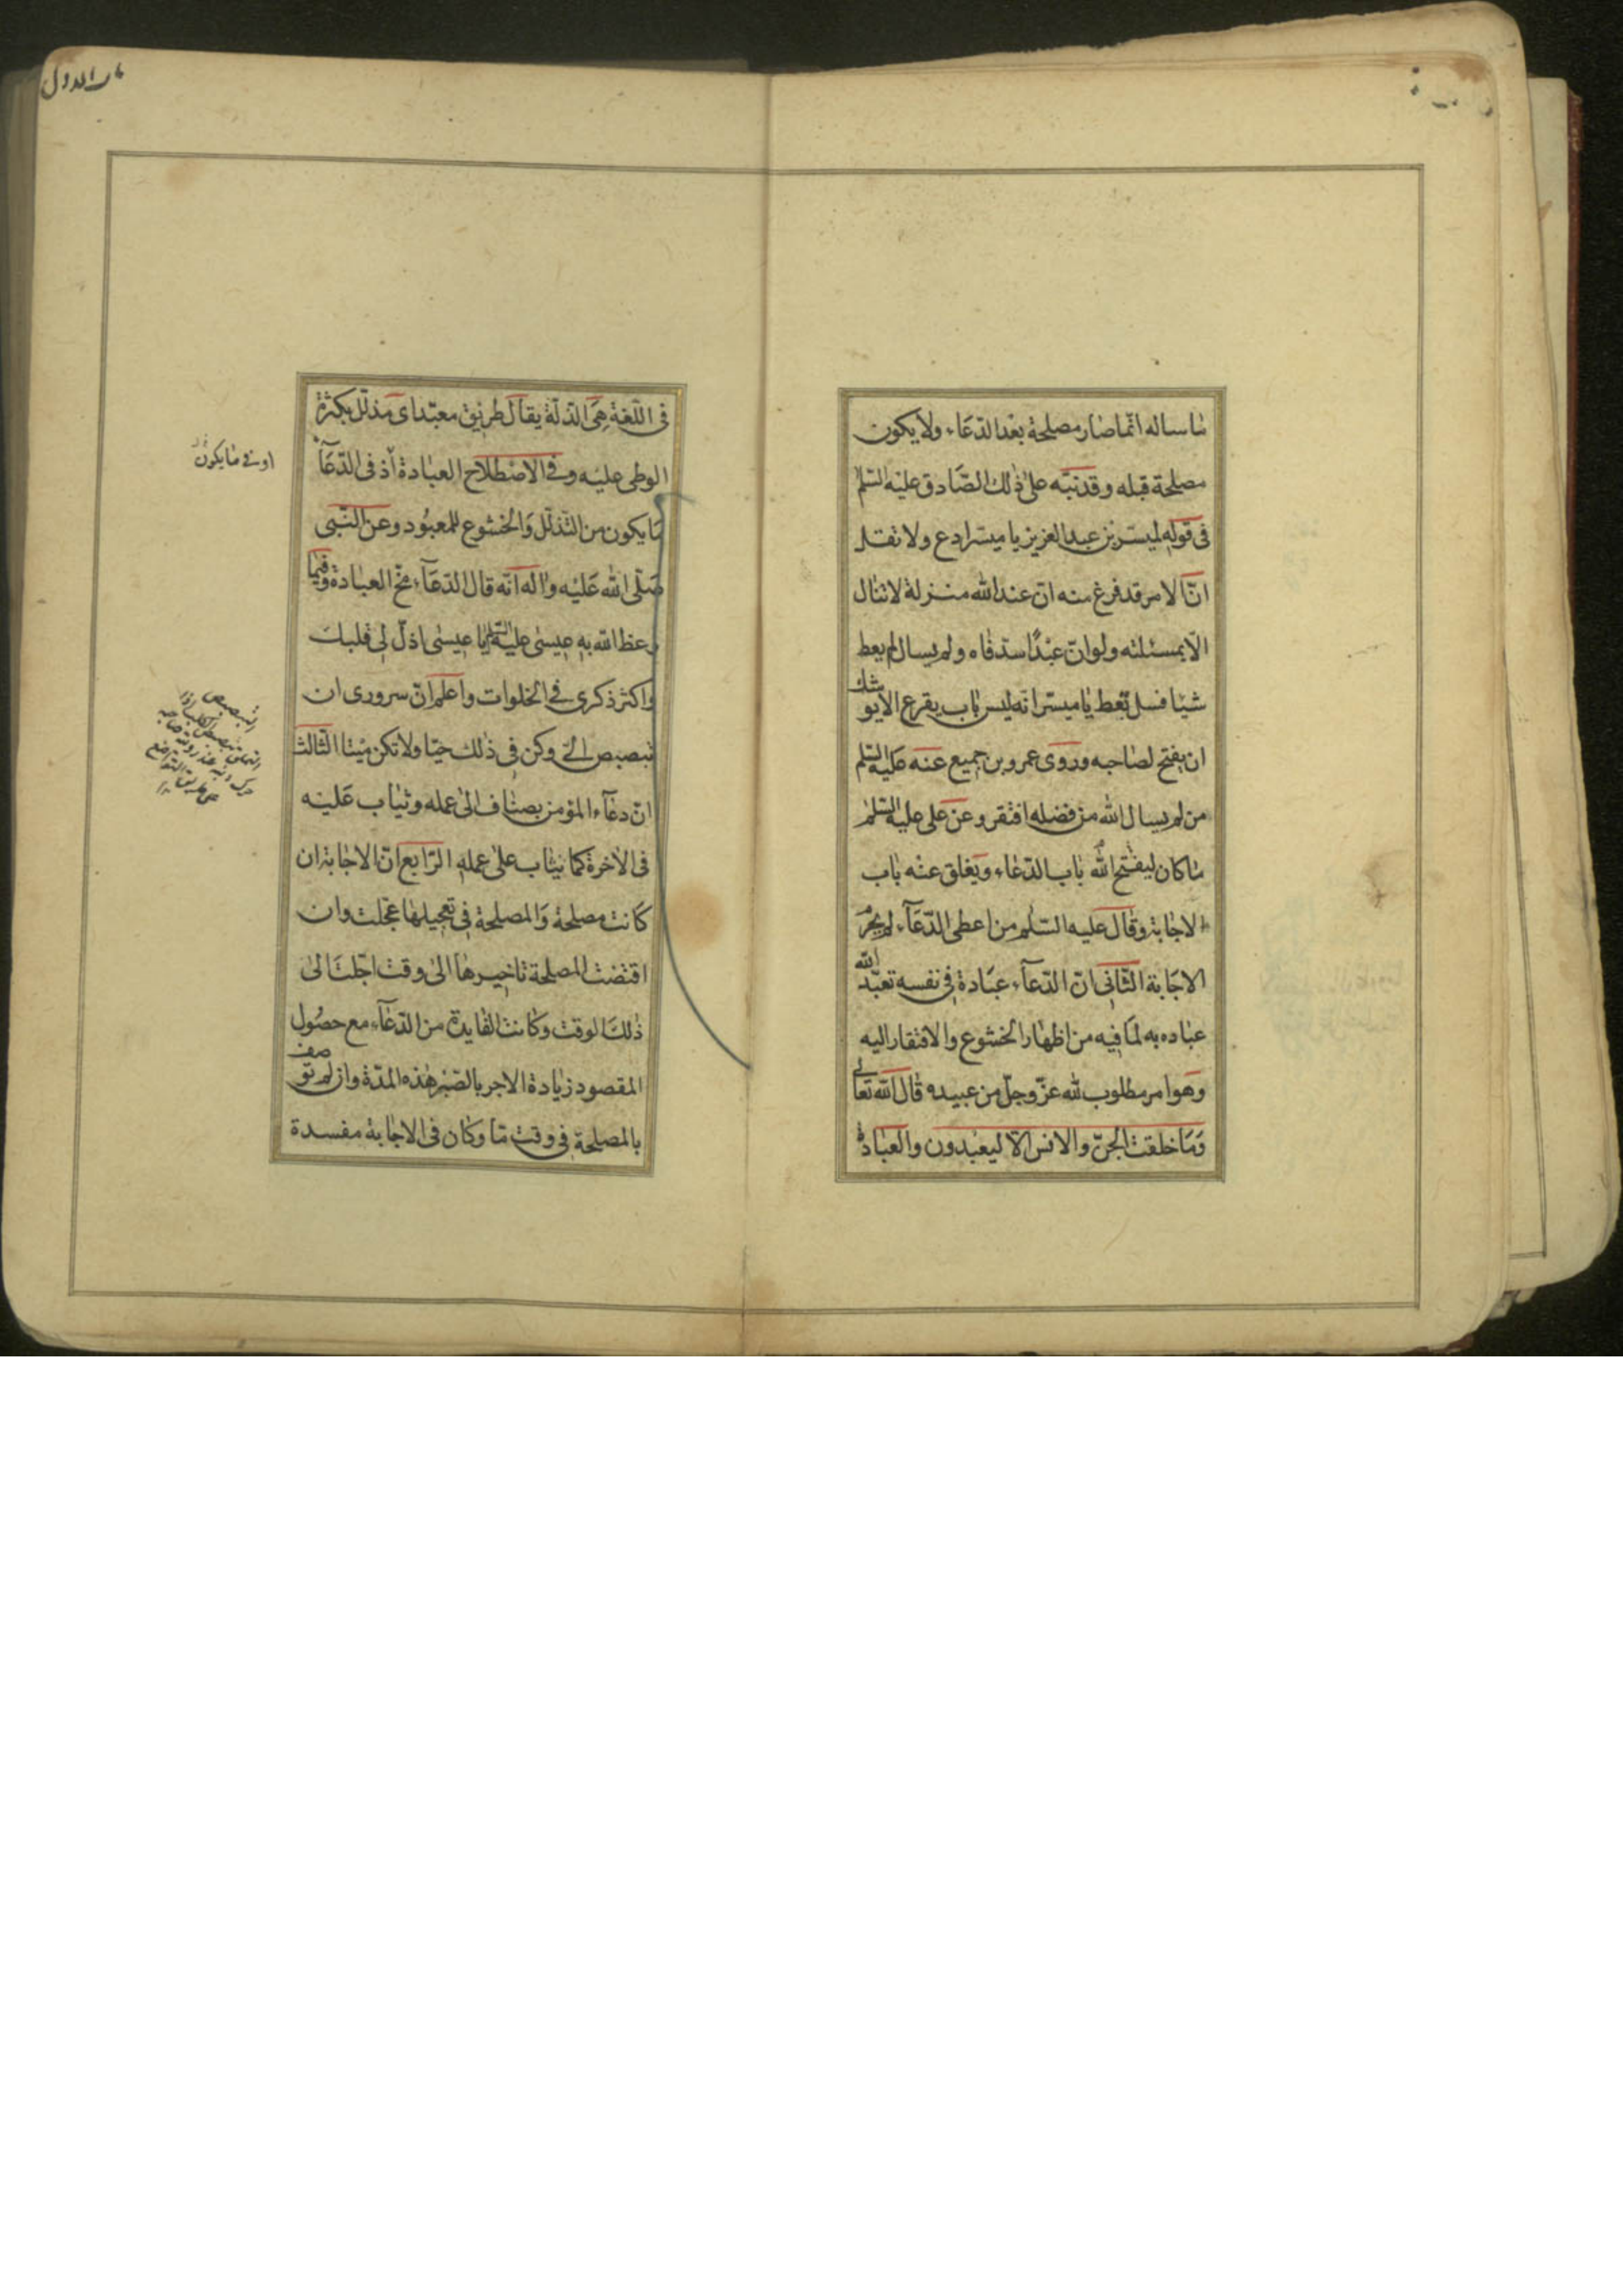 ما ساله انما صار مصلحة بعد الدعاء ولا يكون
مصلحة قبله وقد نبه على ذلك الصادق عليه السلم
فى قوله لميسر بن عبد العزيز يا ميسر ادع ولا تقل
ان الامر قد فرغ منه ان عند الله منزلة لا تنال
الا بمسئلته ولو ان عبدا سد فاه ولم يسال لم يعط
شيئا فسل تعط يا ميسر انه ليس باب يقرع الا يوشك
ان يفتح لصاحبه وروى عمرو بن جميع عنه عليه السلم
من لم يسال الله من فضله افتقر وعن على عليه السلم
ما كان ليفتح الله باب الدعاء ويغلق عنه باب
الاجابة وقال عليه السلم من اعطى الدعاء لم يحرم
الاجابة الثانى ان الدعاء عبادة فى نفسه تعبد الله
عباده به لما فيه من اظهار الخشوع والافتقار اليه
وهو امر مطلوب لله عز وجل من عبيده قال الله تعالى
وما خلقت الجن والانس الا ليعبدون والعبادة
فى اللغة هى الذلة يقال طريق معبد اى مذلل بكثرة
الوطى عليه وفى الاصطلاح العبادة اذ فى الدعاء
ما يكون من التذلل والخشوع للمعبود وعن النبى
صلى الله عليه واله انه قال الدعاء مخ العبادة وفيما
وعظ الله به عيسى عليه السلم يا عيسى اذل لى قلبك
واكثر ذكرى فى الخلوات واعلم ان سرورى ان
تبصبص الى وكن فى ذلك حيا ولا تكن ميتا الثالث
ان دعاء المؤمن يضاف الى عمله ويثاب عليه
فى الاخرة كما يثاب على عمله الرابع ان الاجابة ان
كانت مصلحة والمصلحة فى تعجيلها عجلت وان
اقتضت المصلحة تاخيرها الى وقت اجلت الى
ذلك الوقت وكانت الفايدة من الدعاء مع حصول
المقصود زيادة الاجر بالصبر هذه المدة وان لم توصف
بالمصلحة فى وقت ما وكان فى الاجابة مفسدة
ما يكون